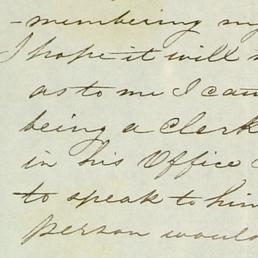 -membering my
I hope it will
as to me I can
being a Clerk
in his Office
to speak to him
person would